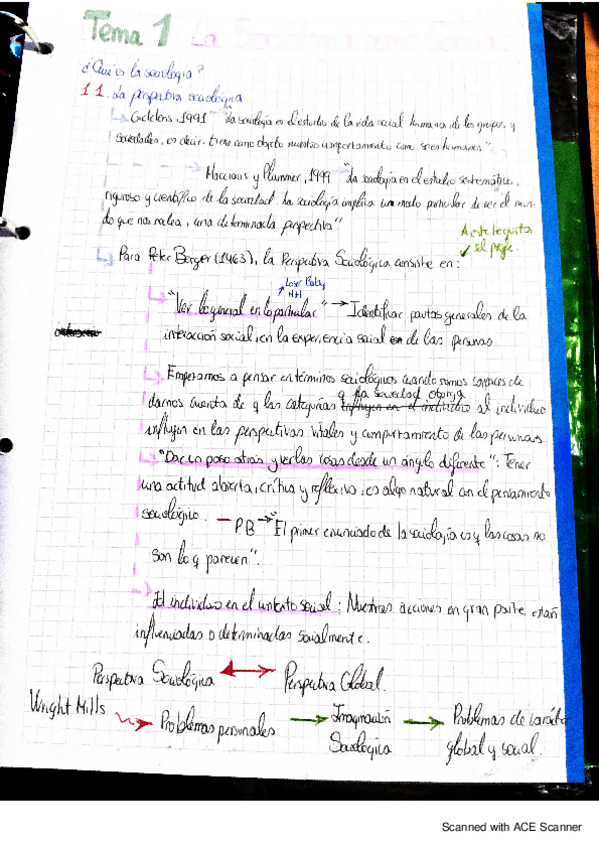 Tema 1 La Sociología como Ciencia.
¿Qué es la sociología?
1.1. La perspectiva sociológica
Giddens, 1991 "La sociología es el estudio de la vida social humana, de los grupos y
sociedades, es decir, tiene como objeto nuestro comportamiento como seres humanos".
Macionis y Plummer, 1999 "La sociología es el estudio sistemático,
riguroso y científico de la sociedad. La sociología implica un modo particular de ver el mun-
do que nos rodea, una determinada perspectiva"
A este le gusta
el profe.
Para Peter Berger (1963), la Perspectiva Sociológica consiste en:
"Ver lo general en lo particular" → Identificar pautas generales de la
interacción social, en la experiencia social de las personas
Empezamos a pensar en términos sociológicos cuando somos capaces de
q la sociedad otorga
darnos cuenta de q las categorías influyen en el individuo al individuo
influyen en las perspectivas vitales y comportamiento de las personas
"Dar un paso atrás y ver las cosas desde un ángulo diferente": Tener
una actitud abierta, crítica y reflexiva, es algo natural en el pensamiento
sociológico. — P.B → "El primer enunciado de la sociología es q las cosas no
son lo q parecen".
El individuo en el contexto social: Nuestras acciones en gran parte están
influenciadas o determinadas socialmente.
Perspectiva Sociológica ↔ Perspectiva Global.
Wright Mills → Problemas personales → Imaginación Sociológica → Problemas de carácter global y social.
Scanned with ACE Scanner